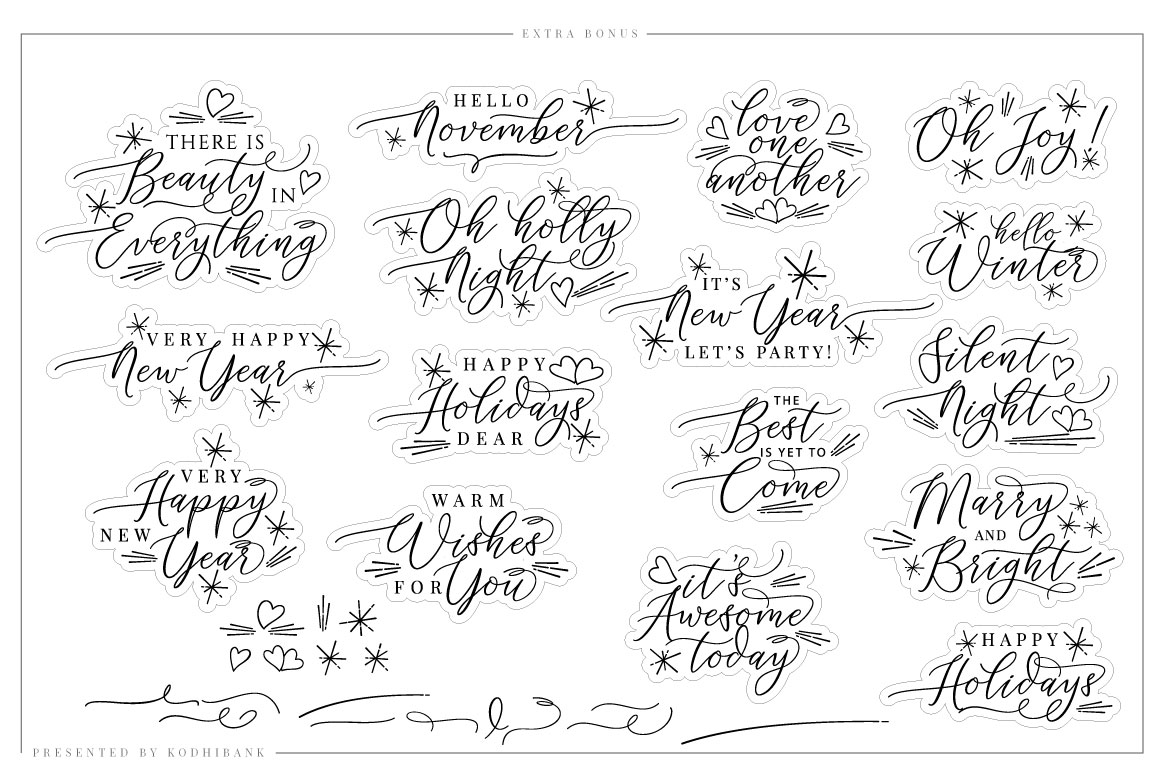 EXTRA BONUS
THERE IS
Beauty IN
Everything
HELLO
November
love
one
another
Oh Joy!
Oh holly
Night
hello
Winter
IT'S
New Year
LET'S PARTY!
VERY HAPPY
New Year
HAPPY
Holidays
DEAR
Silent
Night
THE
Best
IS YET TO
Come
VERY
Happy
NEW
Year
WARM
Wishes
FOR You
Marry
AND
Bright
it's
Awesome
today
HAPPY
Holidays
PRESENTED BY KODHIBANK